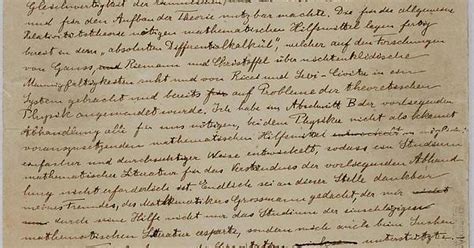 Gleichwertigkeit der
und für den Aufbau der Theorie nutzbar machte. Die für die allgemeine
Relativitätstheorie nötigen mathematischen Hilfsmittel lagen fertig
bereit in dem „absoluten Differentialkalkül“, welcher auf den Forschungen
von Gauss, und Riemann und Christoffel über nichteuklidische
Mannigfaltigkeiten ruht und von Ricci und Levi-Civita in ein
System gebracht und bereits auf Probleme der theoretischen
Physik angewendet wurde. Ich habe im Abschnitt B der vorliegenden
Abhandlung alle für uns nötigen, bei dem Physiker nicht als bekannt
vorauszusetzenden mathematischen Hilfsmittel in möglichst
einfacher und durchsichtiger Weise entwickelt, sodass ein Studium
mathematischer Literatur für das Verständnis der vorliegenden Abhand-
lung nicht erforderlich ist. Endlich sei an dieser Stelle dankbar
meines Freundes, des Mathematikers Grossmann gedacht, der mir
durch seine Hilfe nicht nur das Studium der einschlägigen
mathematischen Literatur ersparte, sondern mich auch beim Suchen
unterstützte